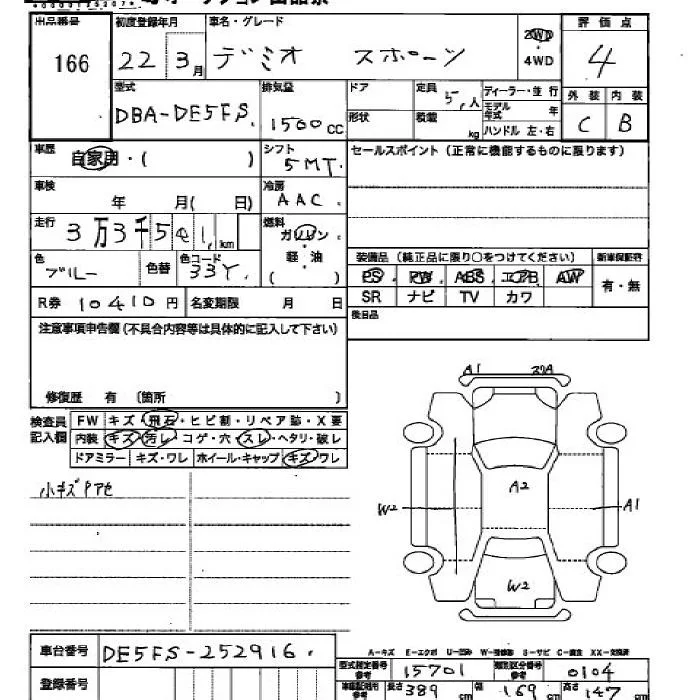 出品番号 初度登録年月 車名・グレード 2WD 評価点
166 22 3月 デミオ スポーツ ・ 4WD 4
型式 排気量 ドア 定員 5人 ディーラー・並行 外装 内装
モデル年式 年
DBA-DE5FS 1500cc 形状 積載 kg ハンドル 左・右 C B
車歴 自家用・( ) シフト 5MT セールスポイント(正常に機能するものに限ります)
車検 年 月( 日) 冷房 AAC
走行 3万3千501km 燃料 ガソリン
軽・油
( )
色 ブルー 色替 色コード 33Y 装備品(純正品に限り○をつけてください) 新車保証書
PS PW ABS エアB AW 有・無
R券 10410円 名変期限 月 日 SR ナビ TV カワ
注意事項申告欄(不具合内容等は具体的に記入して下さい) 後日品
修復歴 有 〔箇所 〕
検査員記入欄 FW キズ・飛石・ヒビ割・リペア跡・X要
内装 キズ・汚レ・コゲ・穴・スレ・ヘタリ・破レ
ドアミラー キズ・ワレ ホイール・キャップ キズ・ワレ
小キズアセ
A1
A2
W2 A1
W2
A-キズ E-エクボ U-凹み W-補修跡 S-サビ C-腐食 XX-交換済
車台番号 DE5FS-252916
型式指定番号 15701 類別区分番号 0104
登録番号 長さ 389 cm 幅 169 cm 高さ 147 cm